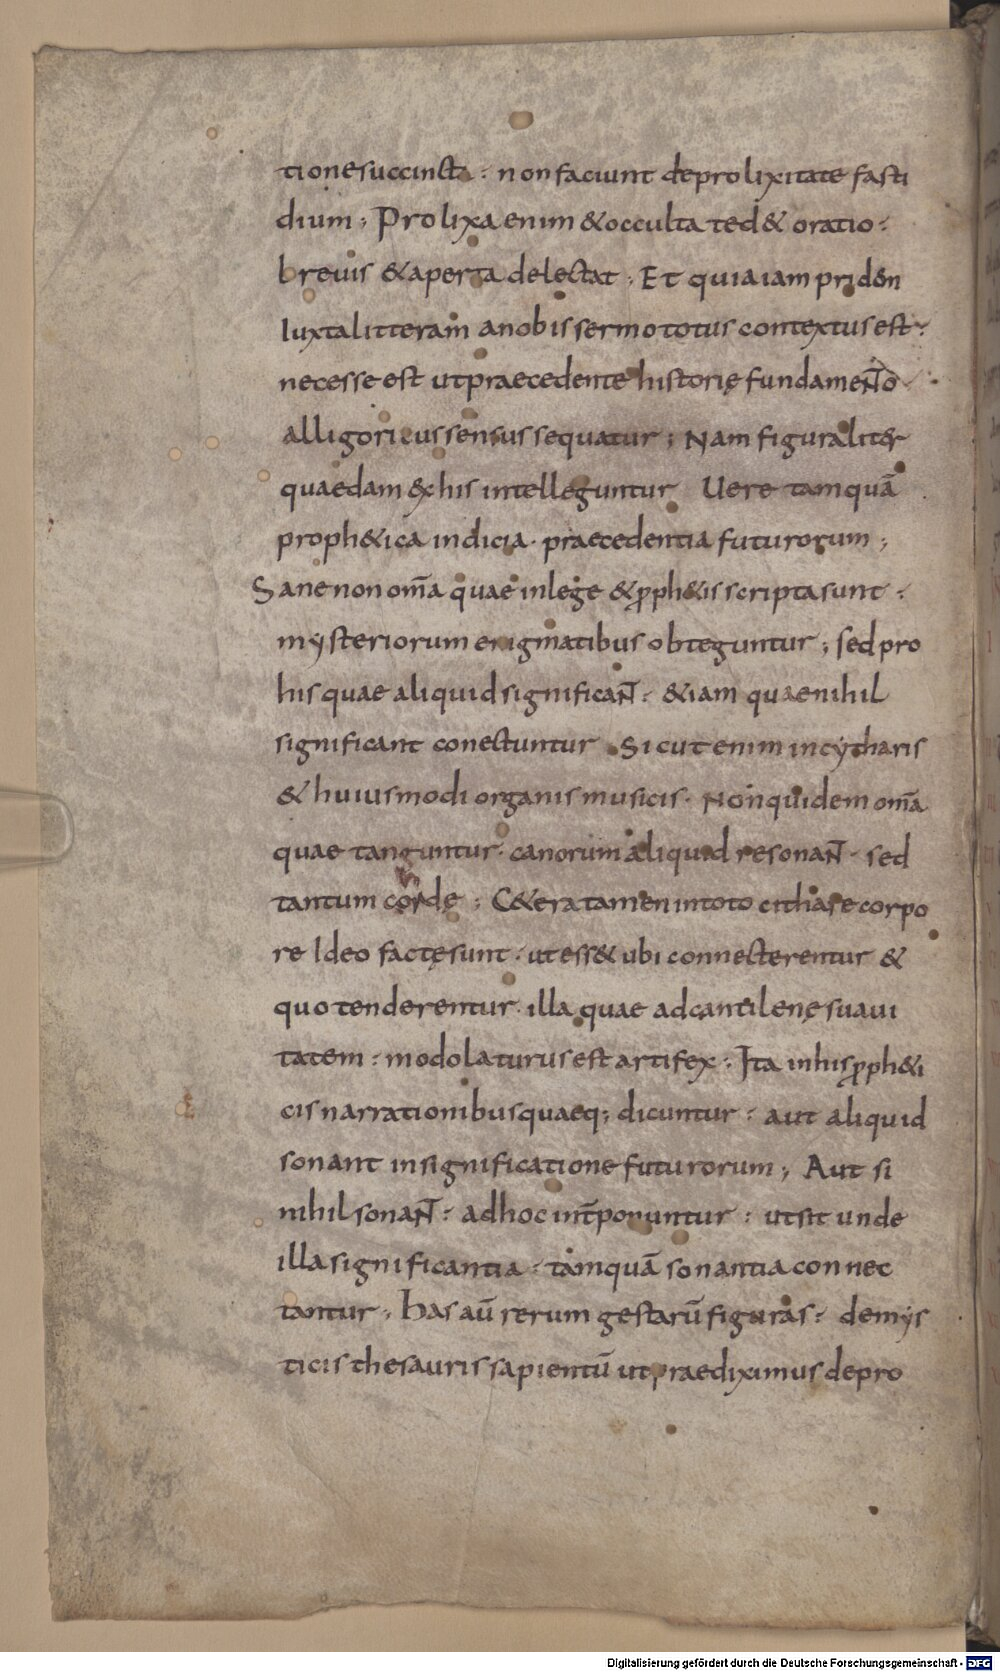 tione succincta : non faciunt de prolixitate fasti
dium ; Prolixa enim & occulta ted& oratio :
breuis & aperta delectat ; Et quia iam pridẽ
Iuxta litteram a nobis sermo totus contextus est :
necesse est ut praecedente historię fundameNTo
alligoricus sensus sequatur ; Nam figuralit&r
quaedam ex his intelleguntur Uere tamquā
proph&ica indicia · praecedentia futurorum ;
Sane non om̄a quae in lege & p̱ph&is scripta sunt :
mysteriorum enigmatibus obteguntur ; sed pro
his quae aliquid significaNT : &iam quae nihil
significant conectuntur Sicut enim in cytharis
& huiusmodi organis musicis · Non quidem om̄a
quae tanguntur · canorum aliquid resonaNT · sed
tantum cordę ; C&era tamen in toto citharę corpo
re Ideo factę sunt · ut ess& ubi connecterentur &
quo tenderentur · illa quae ad cantilenę suaui
tatem : modolaturus est artifex · Ita in his p̱ph&i
cis narrationibus quaeq; dicuntur : aut aliquid
sonant in significatione futurorum ; Aut si
nihil sonaNT : ad hoc int̄ponuntur : ut sit unde
illa significantia · tamquā sonantia connec
tantur ; Has aū rerum gestarū figuras : de mys
ticis thesauris sapientū ut praediximus depro
Digitalisierung gefördert durch die Deutsche Forschungsgemeinschaft - DFG